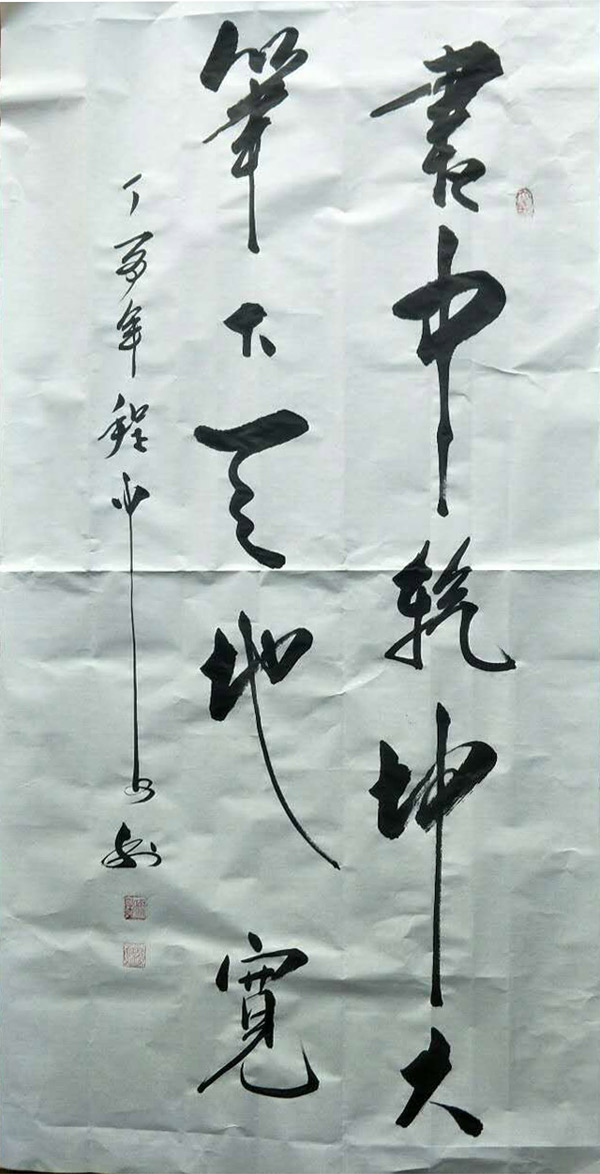 書中乾坤大
筆下天地寬
丁酉年程